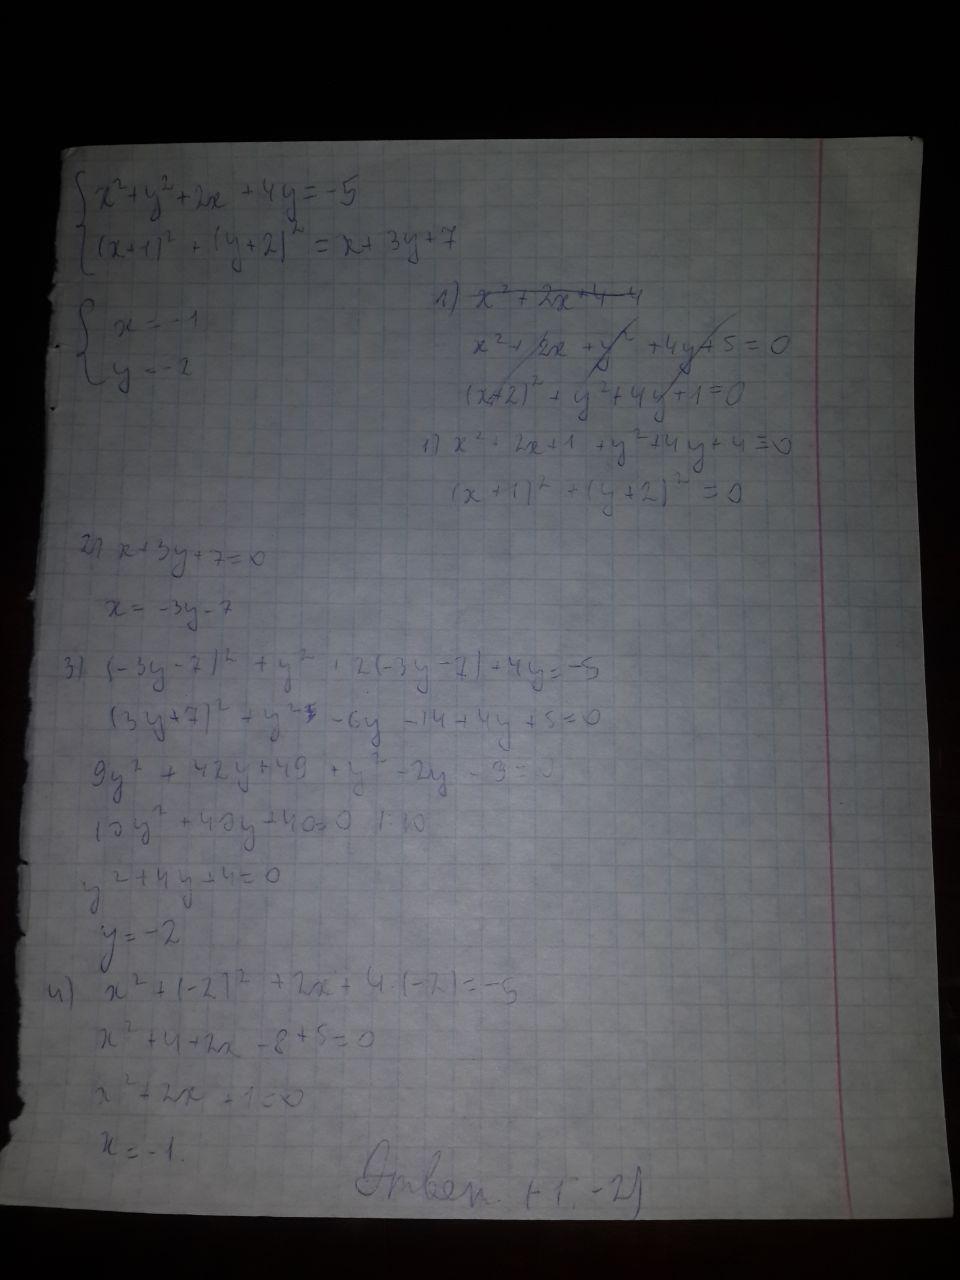 x²+y²+2x+4y=-5
(x+1)²+(y+2)²=x+3y+7
x=-1
y=-2
1) x²+2x+4-4
x²+2x+y²+4y+5=0
(x+2)²+y²+4y+1=0
1) x²+2x+1+y²+4y+4=0
(x+1)²+(y+2)²=0
2) x+3y+7=0
x=-3y-7
3) (-3y-7)²+y²+2(-3y-7)+4y=-5
(3y+7)²+y²-6y-14+4y+5=0
9y²+42y+49+y²-2y-9=0
10y²+40y+40=0 |:10
y²+4y+4=0
y=-2
4) x²+(-2)²+2x+4·(-2)=-5
x²+4+2x-8+5=0
x²+2x+1=0
x=-1.
Ответ. (-1; -2)